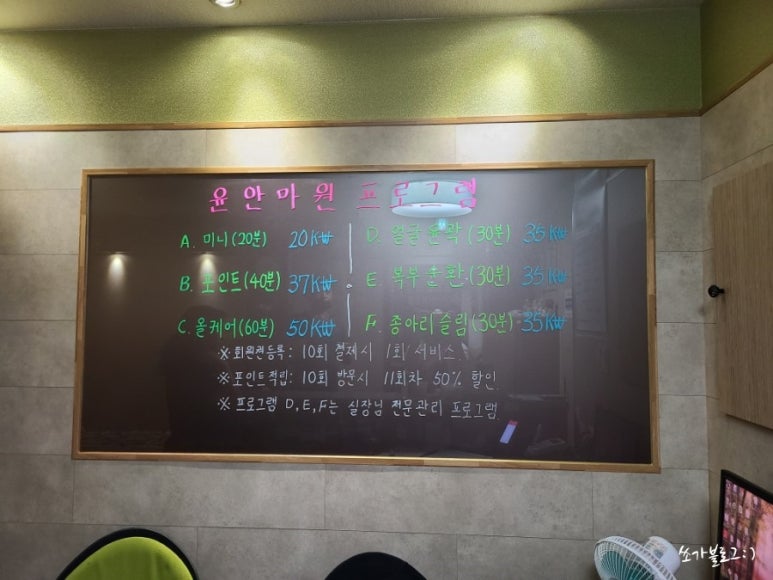 윤안마원 프로그램
A. 미니(20분) 20K₩
B. 포인트(40분) 37K₩
C. 올케어(60분) 50K₩
D. 얼굴윤곽(30분) 35K₩
E. 복부순환(30분) 35K₩
F. 종아리슬림(30분) 35K₩
※ 회원권등록: 10회 결제시 1회 서비스.
※ 포인트적립: 10회 방문시 11회차 50% 할인.
※ 프로그램 D,E,F는 실장님 전문관리 프로그램.
쏘가블로그:)